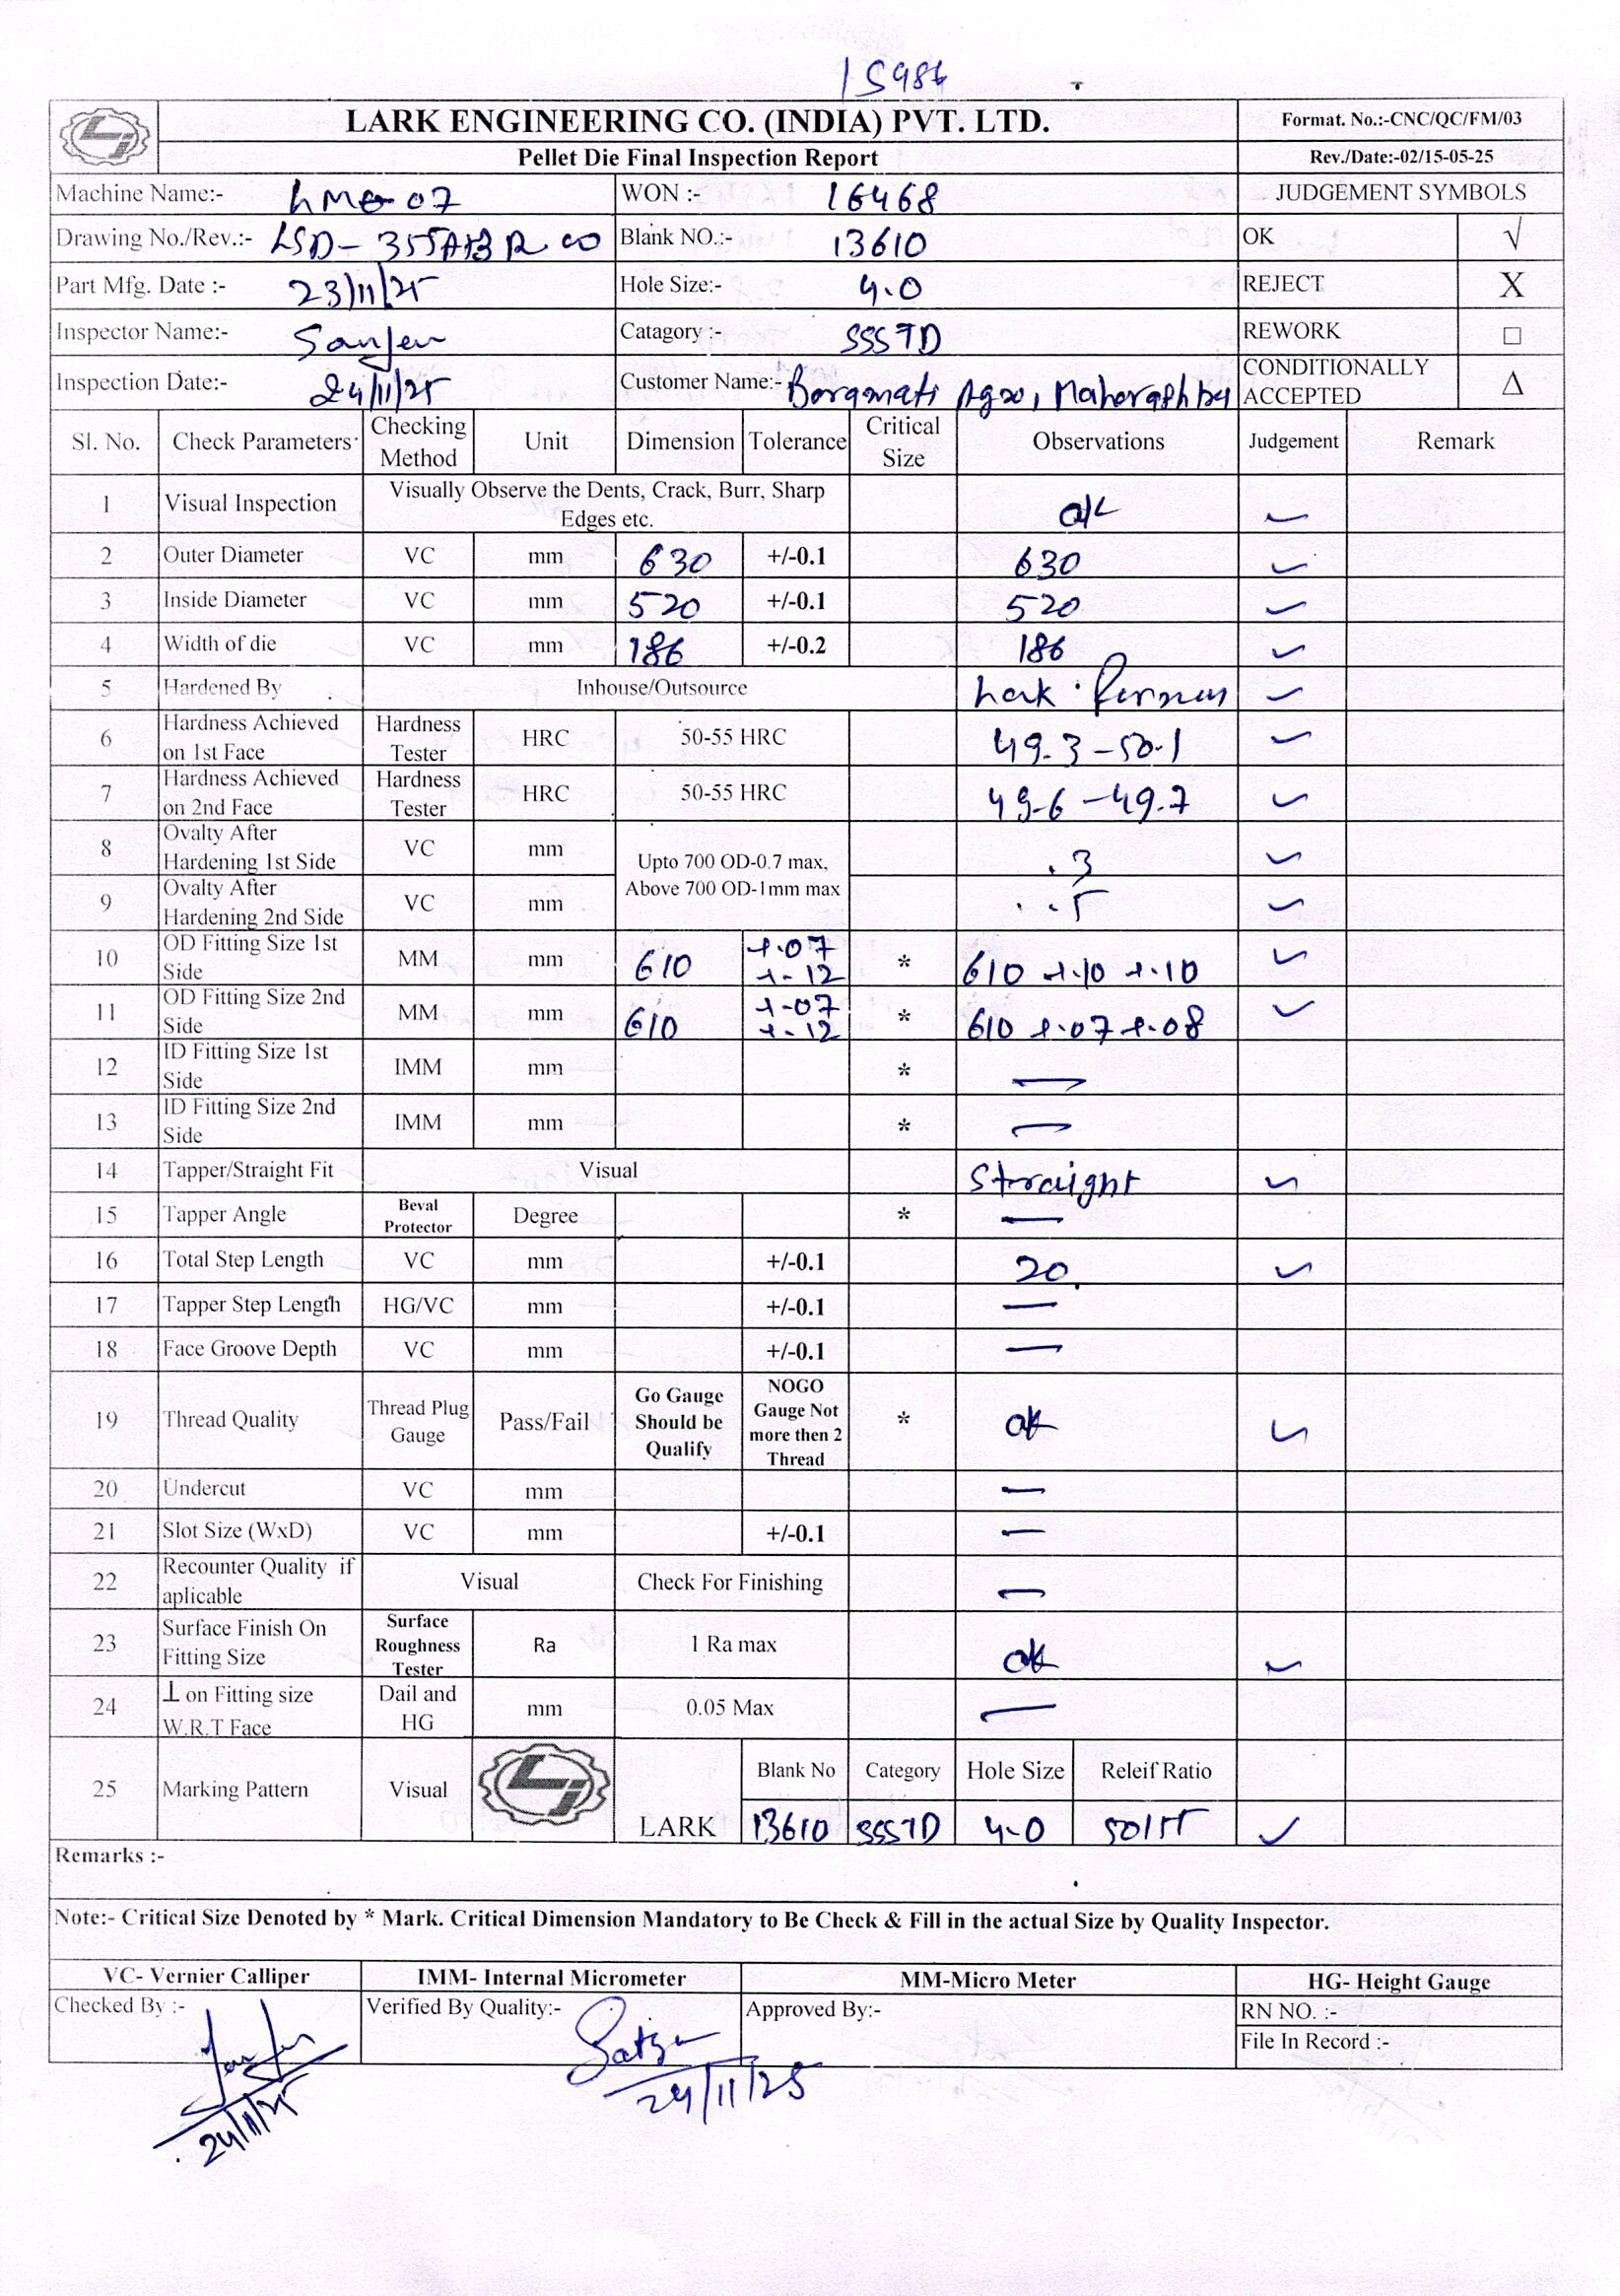 15986
LARK ENGINEERING CO. (INDIA) PVT. LTD. Format. No.:-CNC/QC/FM/03
Pellet Die Final Inspection Report Rev./Date:-02/15-05-25
Machine Name:- WON :- 16468 JUDGEMENT SYMBOLS
Drawing No./Rev.:- LSD-355 Blank NO.:- 13610 OK √
Part Mfg. Date :- 23/11/25 Hole Size:- 4.0 REJECT X
Inspector Name:- Catagory :- SSSTD REWORK □
Inspection Date:- 24/11/25 Customer Name:- Baramati Agro, CONDITIONALLY ACCEPTED Δ
Sl. No. Check Parameters Checking Method Unit Dimension Tolerance Critical Size Observations Judgement Remark
1 Visual Inspection Visually Observe the Dents, Crack, Burr, Sharp Edges etc. ok ✓
2 Outer Diameter VC mm 630 +/-0.1 630 ✓
3 Inside Diameter VC mm 520 +/-0.1 520 ✓
4 Width of die VC mm 186 +/-0.2 186 ✓
5 Hardened By Inhouse/Outsource Lark ✓
6 Hardness Achieved on 1st Face Hardness Tester HRC 50-55 HRC 49.3-50.1 ✓
7 Hardness Achieved on 2nd Face Hardness Tester HRC 50-55 HRC 49.6-49.7 ✓
8 Ovalty After Hardening 1st Side VC mm Upto 700 OD-0.7 max, Above 700 OD-1mm max .3 ✓
9 Ovalty After Hardening 2nd Side VC mm .5 ✓
10 OD Fitting Size 1st Side MM mm 610 +.07 +.12 * 610 +.10 +.10 ✓
11 OD Fitting Size 2nd Side MM mm 610 +.07 +.12 * 610 +.07 +.08 ✓
12 ID Fitting Size 1st Side IMM mm * —
13 ID Fitting Size 2nd Side IMM mm * —
14 Tapper/Straight Fit Visual Straight ✓
15 Tapper Angle Beval Protector Degree * —
16 Total Step Length VC mm +/-0.1 20 ✓
17 Tapper Step Length HG/VC mm +/-0.1 —
18 Face Groove Depth VC mm +/-0.1 —
19 Thread Quality Thread Plug Gauge Pass/Fail Go Gauge Should be Qualify NOGO Gauge Not more then 2 Thread * ok ✓
20 Undercut VC mm —
21 Slot Size (WxD) VC mm +/-0.1 —
22 Recounter Quality if aplicable Visual Check For Finishing —
23 Surface Finish On Fitting Size Surface Roughness Tester Ra 1 Ra max ok ✓
24 ⊥ on Fitting size W.R.T Face Dail and HG mm 0.05 Max —
25 Marking Pattern Visual LARK Blank No Category Hole Size Releif Ratio
13610 SSSTD 4.0 ✓
Remarks :-
Note:- Critical Size Denoted by * Mark. Critical Dimension Mandatory to Be Check & Fill in the actual Size by Quality Inspector.
VC- Vernier Calliper IMM- Internal Micrometer MM-Micro Meter HG- Height Gauge
Checked By :- Verified By Quality:- Approved By:- RN NO. :-
File In Record :-
24/11/25 24/11/25